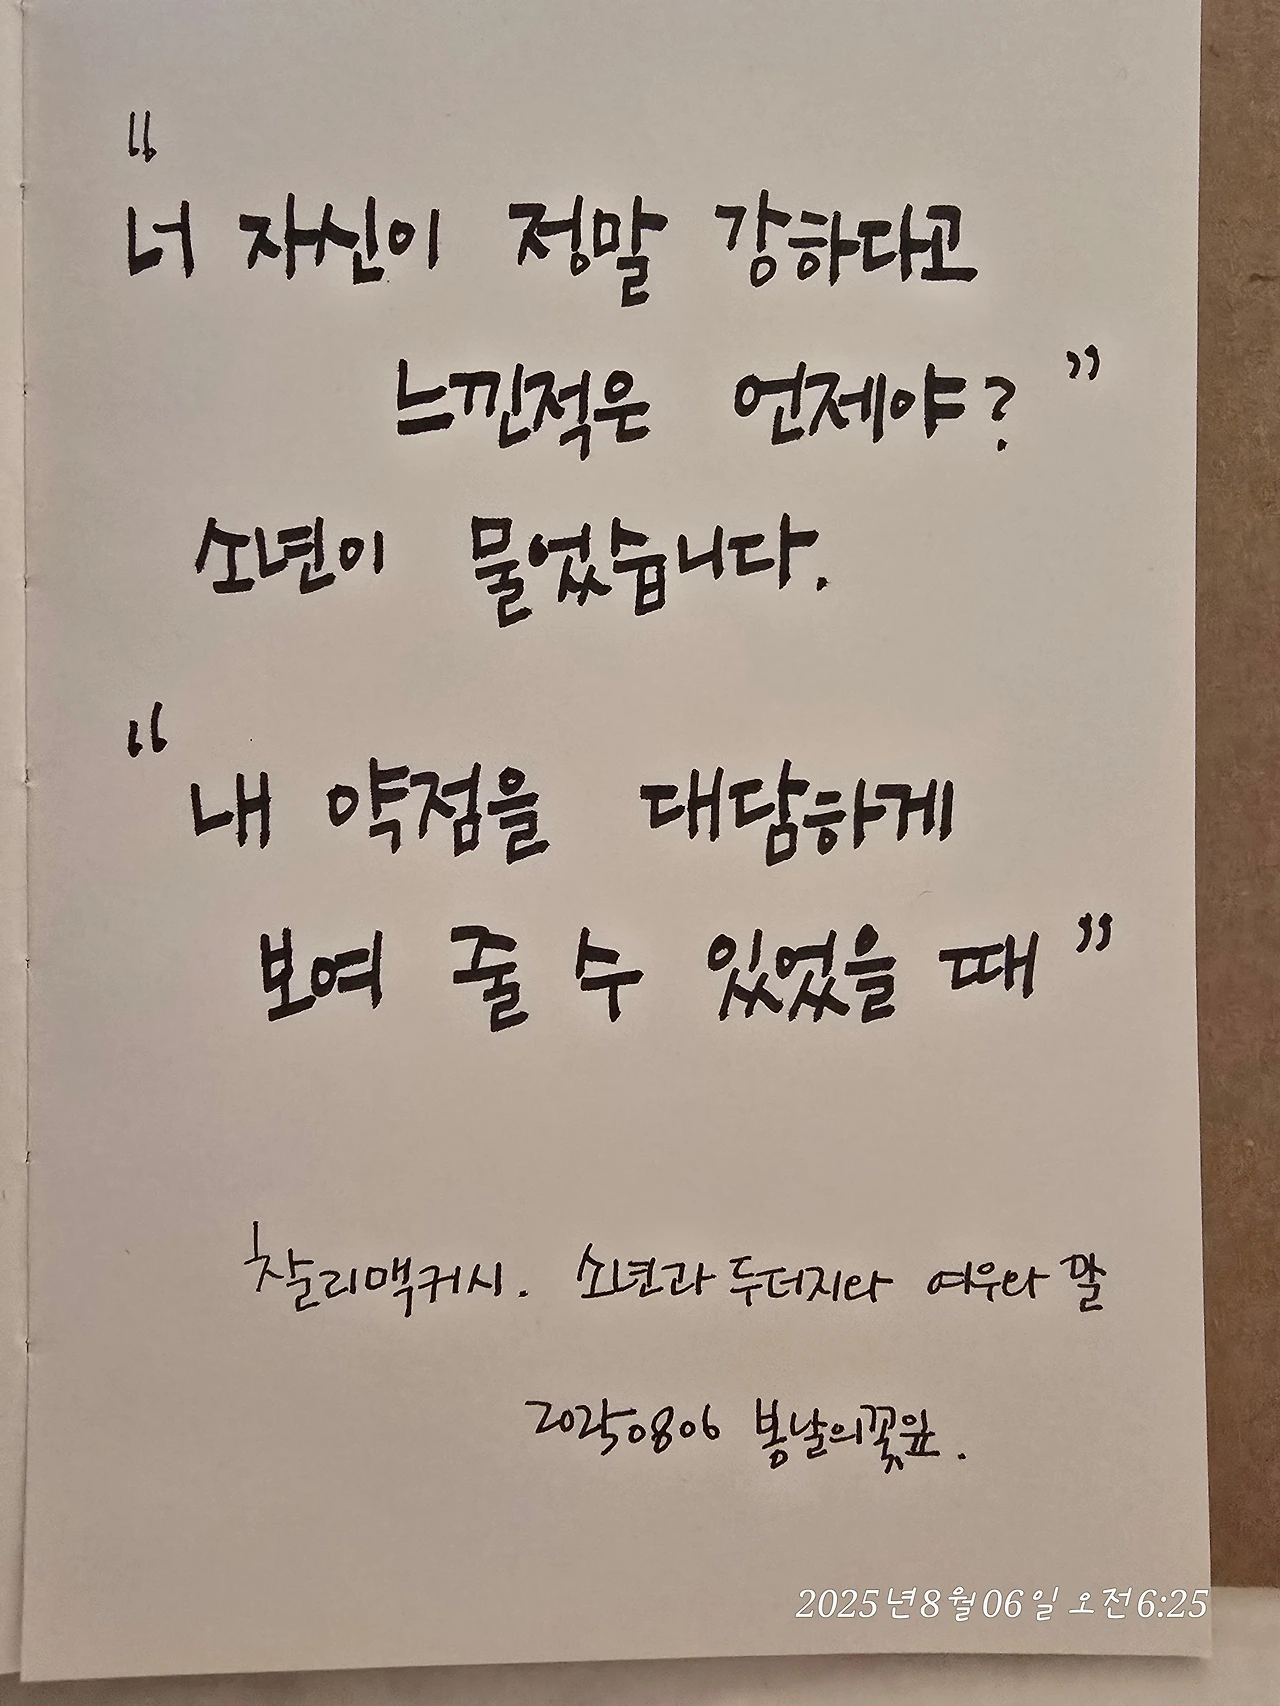 “
너 자신이 정말 강하다고
느낀적은 언제야? ”
소년이 물었습니다.
“ 내 약점을 대담하게
보여 줄 수 있었을 때 ”
찰리맥커시. 소년과 두더지와 여우와 말
20250806 봄날의꽃잎.
2025년8월06일 오전6:25